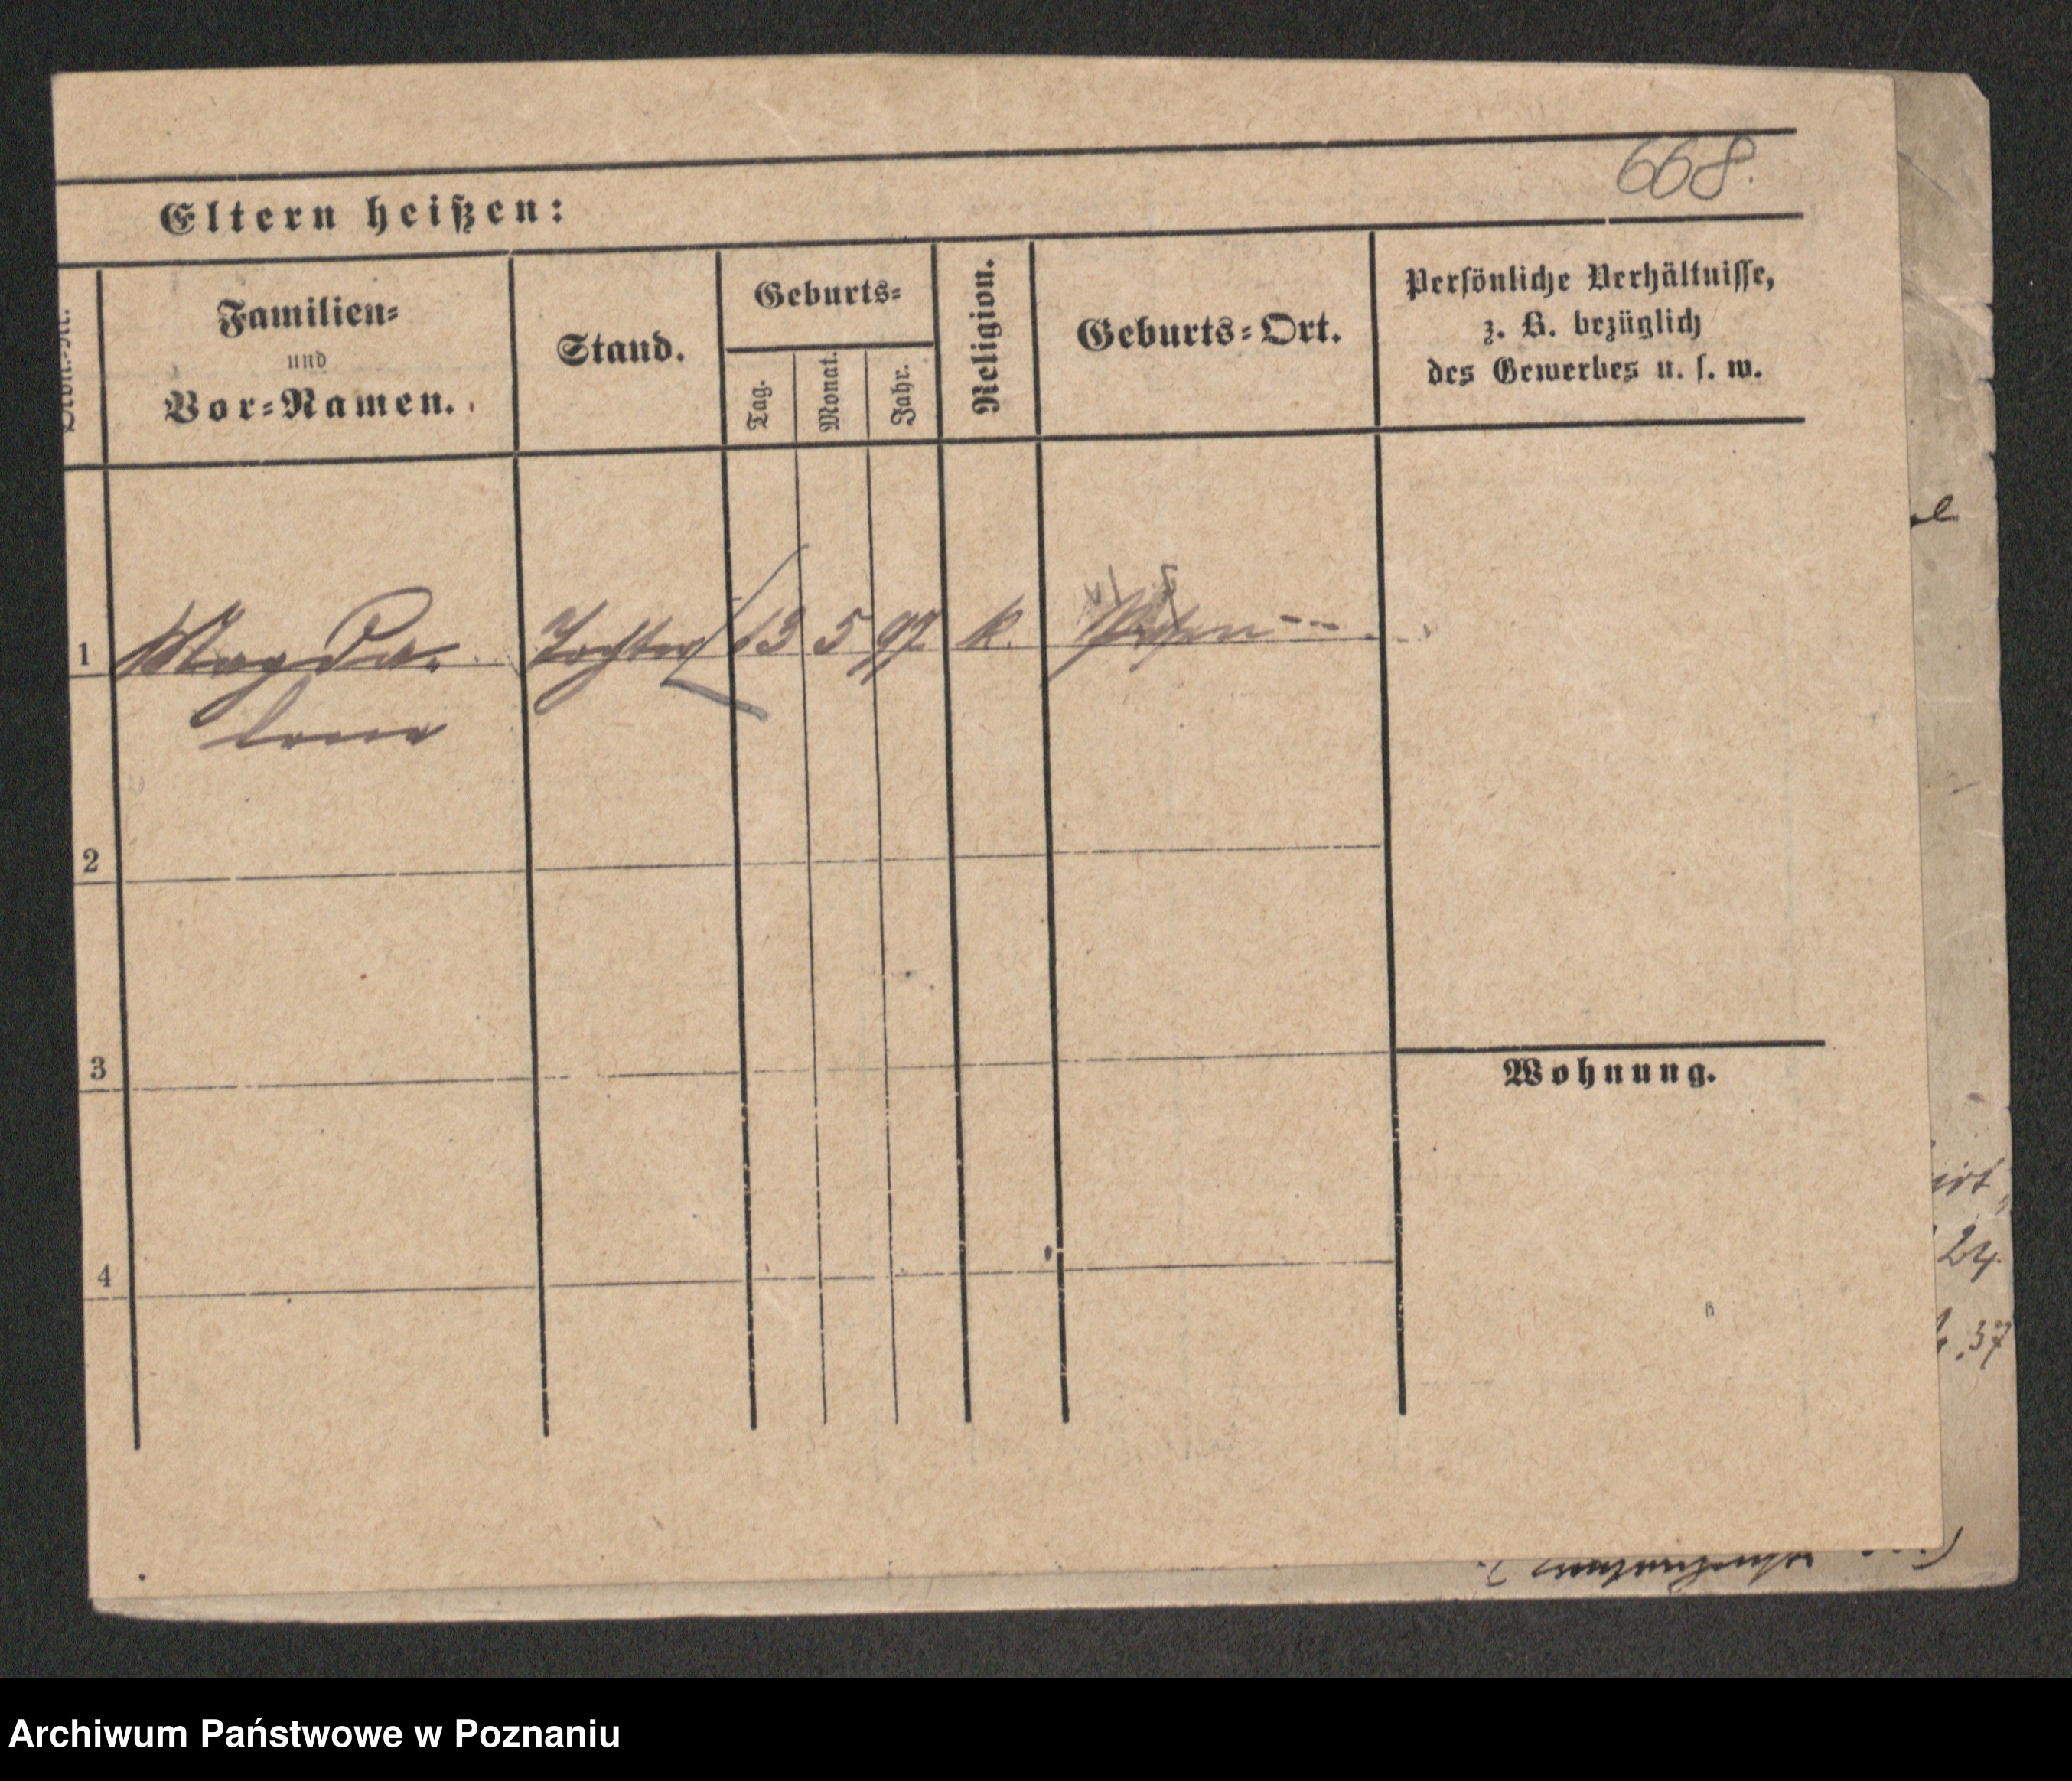 668.
Eltern heißen:
Familien=
und
Vor=Namen.
Stand.
Geburts=
Tag.
Monat.
Jahr.
Religion.
Geburts=Ort.
Persönliche Verhältnisse,
z. B. bezüglich
des Gewerbes u. s. w.
1 Magda- Tochter 13 5 97. k. Posen
lena
2
3
Wohnung.
4
24.
37
Archiwum Państwowe w Poznaniu